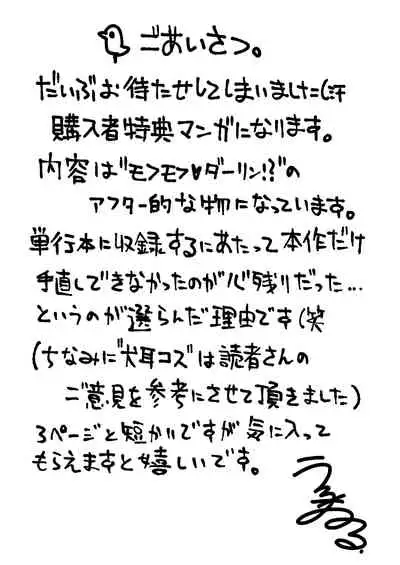 ごあいさつ。
だいぶお待たせしてしまいました(汗
購入者特典マンガになります。
内容は"モフモフ♥ダーリン!?"の
アフター的な物になっています。
単行本に収録するにあたって本作だけ
手直しできなかったのが心残りだった…
というのが選らんだ理由です(笑
(ちなみに"犬耳コス"は読者さんの
ご意見を参考にさせて頂きました)
3ページと短かいですが気に入って
もらえますと嬉しいです。